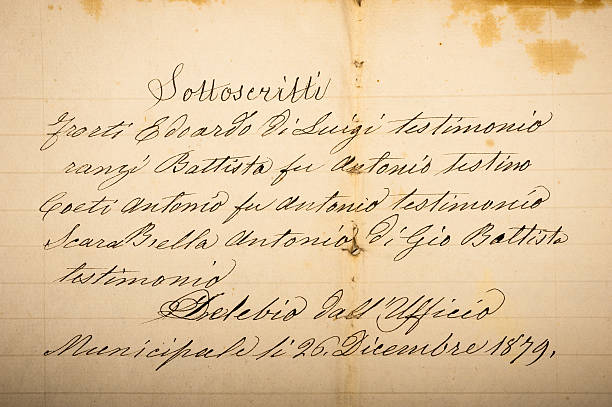 Sottoscritti
Edoardo di Luigi testimonio
rangi Battista fu Antonio testino
Coeti Antonio fu Antonio testimonio
Scara Biella Antonio di Gio Battista
testimonio
Delebio dall'Ufficio
Municipale li 26. Dicembre 1879.